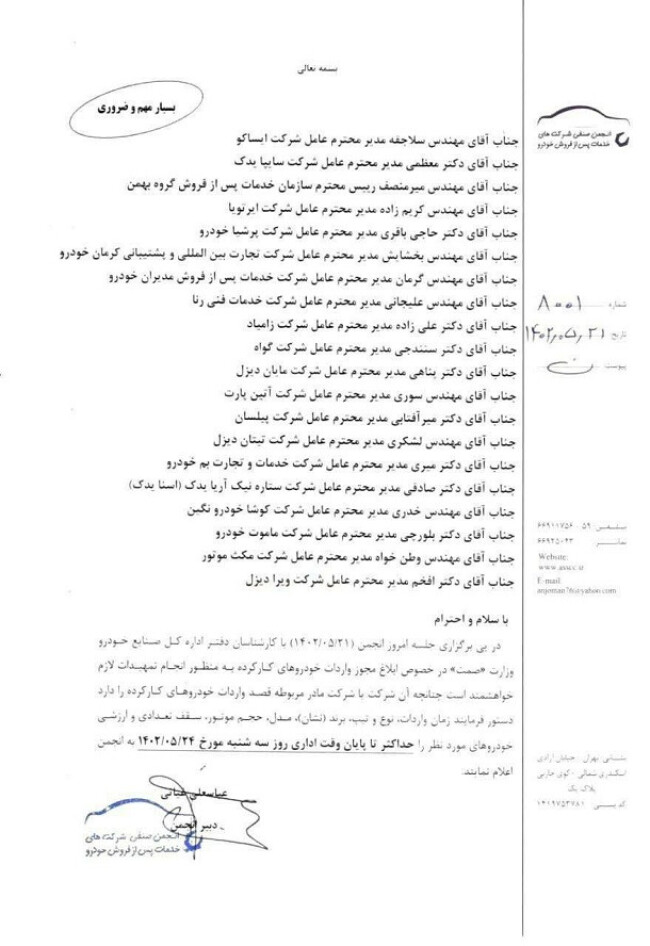 بسمه تعالی
بسیار مهم و ضروری
انجمن صنفی شرکت های
خدمات پس از فروش خودرو
شماره ۸۰۰۱
تاریخ ۱۴۰۲،۰۵،۲۱
پیوست ن
جناب آقای مهندس سلاجقه مدیر محترم عامل شرکت ایساکو
جناب آقای دکتر معظمی مدیر محترم عامل شرکت سایپا یدک
جناب آقای مهندس میرمنصف رییس محترم سازمان خدمات پس از فروش گروه بهمن
جناب آقای مهندس کریم زاده مدیر محترم عامل شرکت ایرتویا
جناب آقای دکتر حاجی باقری مدیر محترم عامل شرکت پرشیا خودرو
جناب آقای مهندس بخشایش مدیر محترم عامل شرکت تجارت بین المللی و پشتیبانی کرمان خودرو
جناب آقای مهندس گرمان مدیر محترم عامل شرکت خدمات پس از فروش مدیران خودرو
جناب آقای مهندس علیجانی مدیر محترم عامل شرکت خدمات فنی رنا
جناب آقای دکتر علی زاده مدیر محترم عامل شرکت زامیاد
جناب آقای دکتر سنندجی مدیر محترم عامل شرکت گواه
جناب آقای دکتر پناهی مدیر محترم عامل شرکت مایان دیزل
جناب آقای مهندس سوری مدیر محترم عامل شرکت آتین پارت
جناب آقای دکتر میرآفتابی مدیر محترم عامل شرکت پیلسان
جناب آقای مهندس لشکری مدیر محترم عامل شرکت تیتان دیزل
جناب آقای دکتر میری مدیر محترم عامل شرکت خدمات و تجارت بم خودرو
جناب آقای دکتر صادقی مدیر محترم عامل شرکت ستاره نیک آریا یدک (اسنا یدک)
جناب آقای مهندس خدری مدیر محترم عامل شرکت کوشا خودرو نگین
جناب آقای دکتر بلورچی مدیر محترم عامل شرکت ماموت خودرو
جناب آقای مهندس وطن خواه مدیر محترم عامل شرکت مکث موتور
جناب آقای دکتر افخم مدیر محترم عامل شرکت ویرا دیزل
با سلام و احترام
در پی برگزاری جلسه امروز انجمن (۱۴۰۲/۰۵/۲۱) با کارشناسان دفتر اداره کل صنایع خودرو
وزارت «صمت» در خصوص ابلاغ مجوز واردات خودروهای کارکرده به منظور انجام تمهیدات لازم
خواهشمند است چنانچه آن شرکت یا شرکت مادر مربوطه قصد واردات خودروهای کارکرده را دارد
دستور فرمایند زمان واردات، نوع و تیپ، برند (نشان)، مدل، حجم موتور، سقف تعدادی و ارزشی
خودروهای مورد نظر را حداکثر تا پایان وقت اداری روز سه شنبه مورخ ۱۴۰۲/۰۵/۲۴ به انجمن
اعلام نمایند.
عباسعلی
دبیر انجمن
انجمن صنفی شرکت های
خدمات پس از فروش خودرو
تلفن ۵۹ - ۶۶۹۱۰۷۵۶
نمابر ۶۶۹۲۵۰۲۳
Website:
www.asscc.ir
E-mail:
anjoman76@yahoo.com
نشانی: تهران - خیابان آزادی
اسکندری شمالی - کوی
پلاک یک
کد پستی ۱۴۱۹۷۵۳۷۸۱